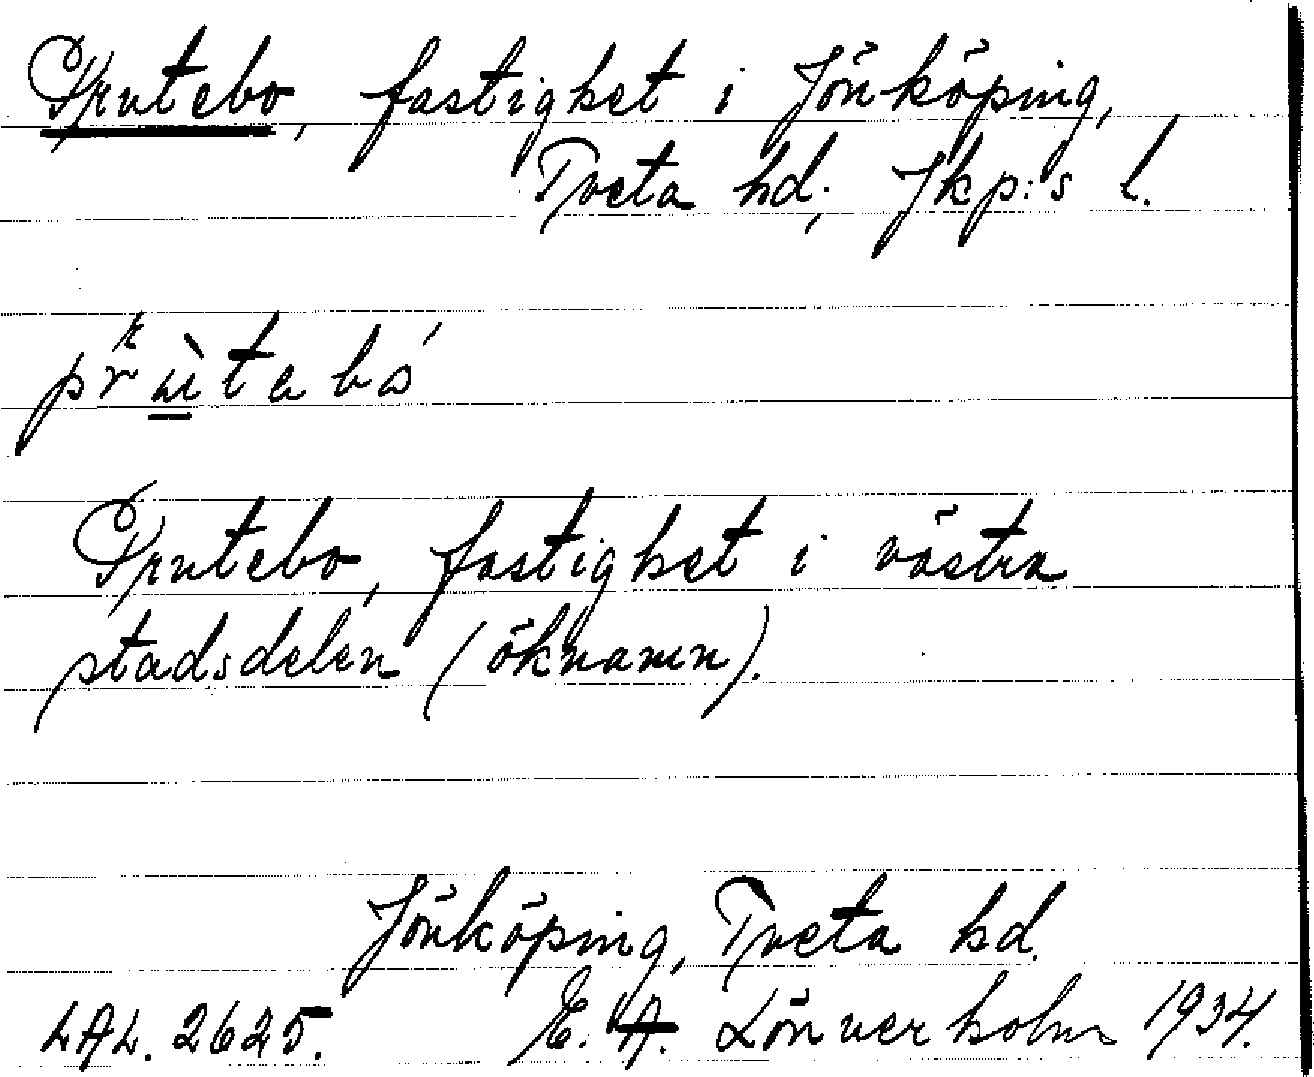 Prutebo, fastighet i Jönköping,
Tveta hd, Jkp:s l.
prùtebó
Prutebo, fastighet i västra
stadsdelen (öknamn).
Jönköping, Tveta hd.
LAL. 2625. E. A. Lönnerholm 1934.